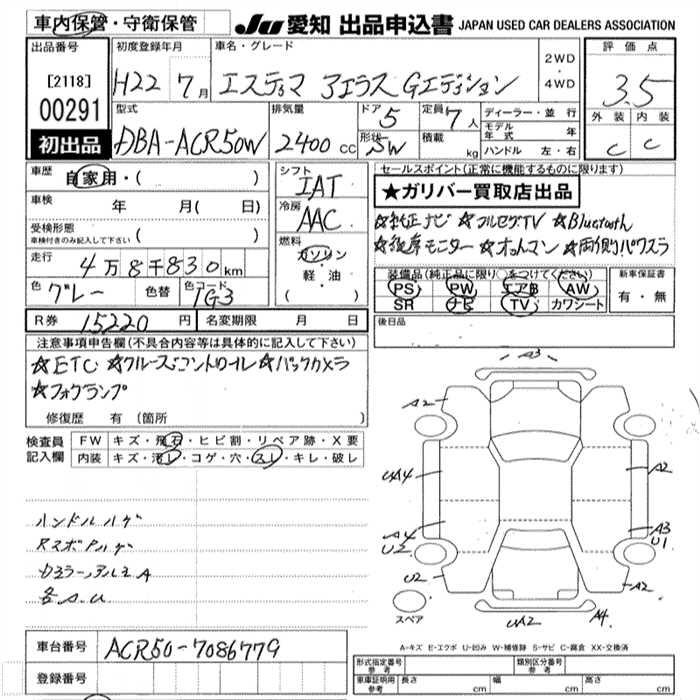 車内保管・守衛保管 JU 愛知 出品申込書 JAPAN USED CAR DEALERS ASSOCIATION
出品番号 初度登録年月 車名・グレード 2WD・4WD 評価点
[2118] H22 7月 エスティマ アエラス Gエディション 3.5
00291 型式 排気量 ドア 5 定員 7人 ディーラー・並行 外装 内装
初出品 DBA-ACR50W 2400cc 形状 SW 積載 kg モデル年式 年 C C
ハンドル 左・右
車歴 自家用・( ) シフト IAT セールスポイント(正常に機能するものに限ります)
車検 年 月(日) 冷房 AAC ★ガリバー買取店出品
受検形態 ( ) ☆純正ナビ ☆フルセグTV ☆Bluetooth
車検付きのみ記入して下さい 燃料 ガソリン・軽・油 ( ) ☆後席モニター ☆オットマン ☆両側パワスラ
走行 4万8千830km 装備品(純正品に限り○をつけてください) 新車保証書
色 グレー 色替 色コード 1G3 PS PW エアB AW 有・無
SR ナビ TV カワシート
R券 15220円 名変期限 月 日 後日品
注意事項申告欄(不具合内容等は具体的に記入して下さい)
☆ETC ☆クルーズコントロール ☆バックカメラ
☆フォグランプ
修復歴 有 (箇所 )
検査員記入欄 FW キズ・飛石・ヒビ割・リペア跡・X要
内装 キズ・汚レ・コゲ・穴・スレ・キレ・破レ
A3
A2
UA4 A2
A4 A3
U2 U1
U2 A2
UA2 A4
スペア
ハンドルハゲ
各A.U
A-キズ E-エクボ U-凹み W-補修跡 S-サビ C-腐食 XX-交換済
車台番号 ACR50-7086779
登録番号
形式指定番号 参考 類別区分番号 参考
車庫証明用 参考 長さ cm 幅 cm 高さ cm